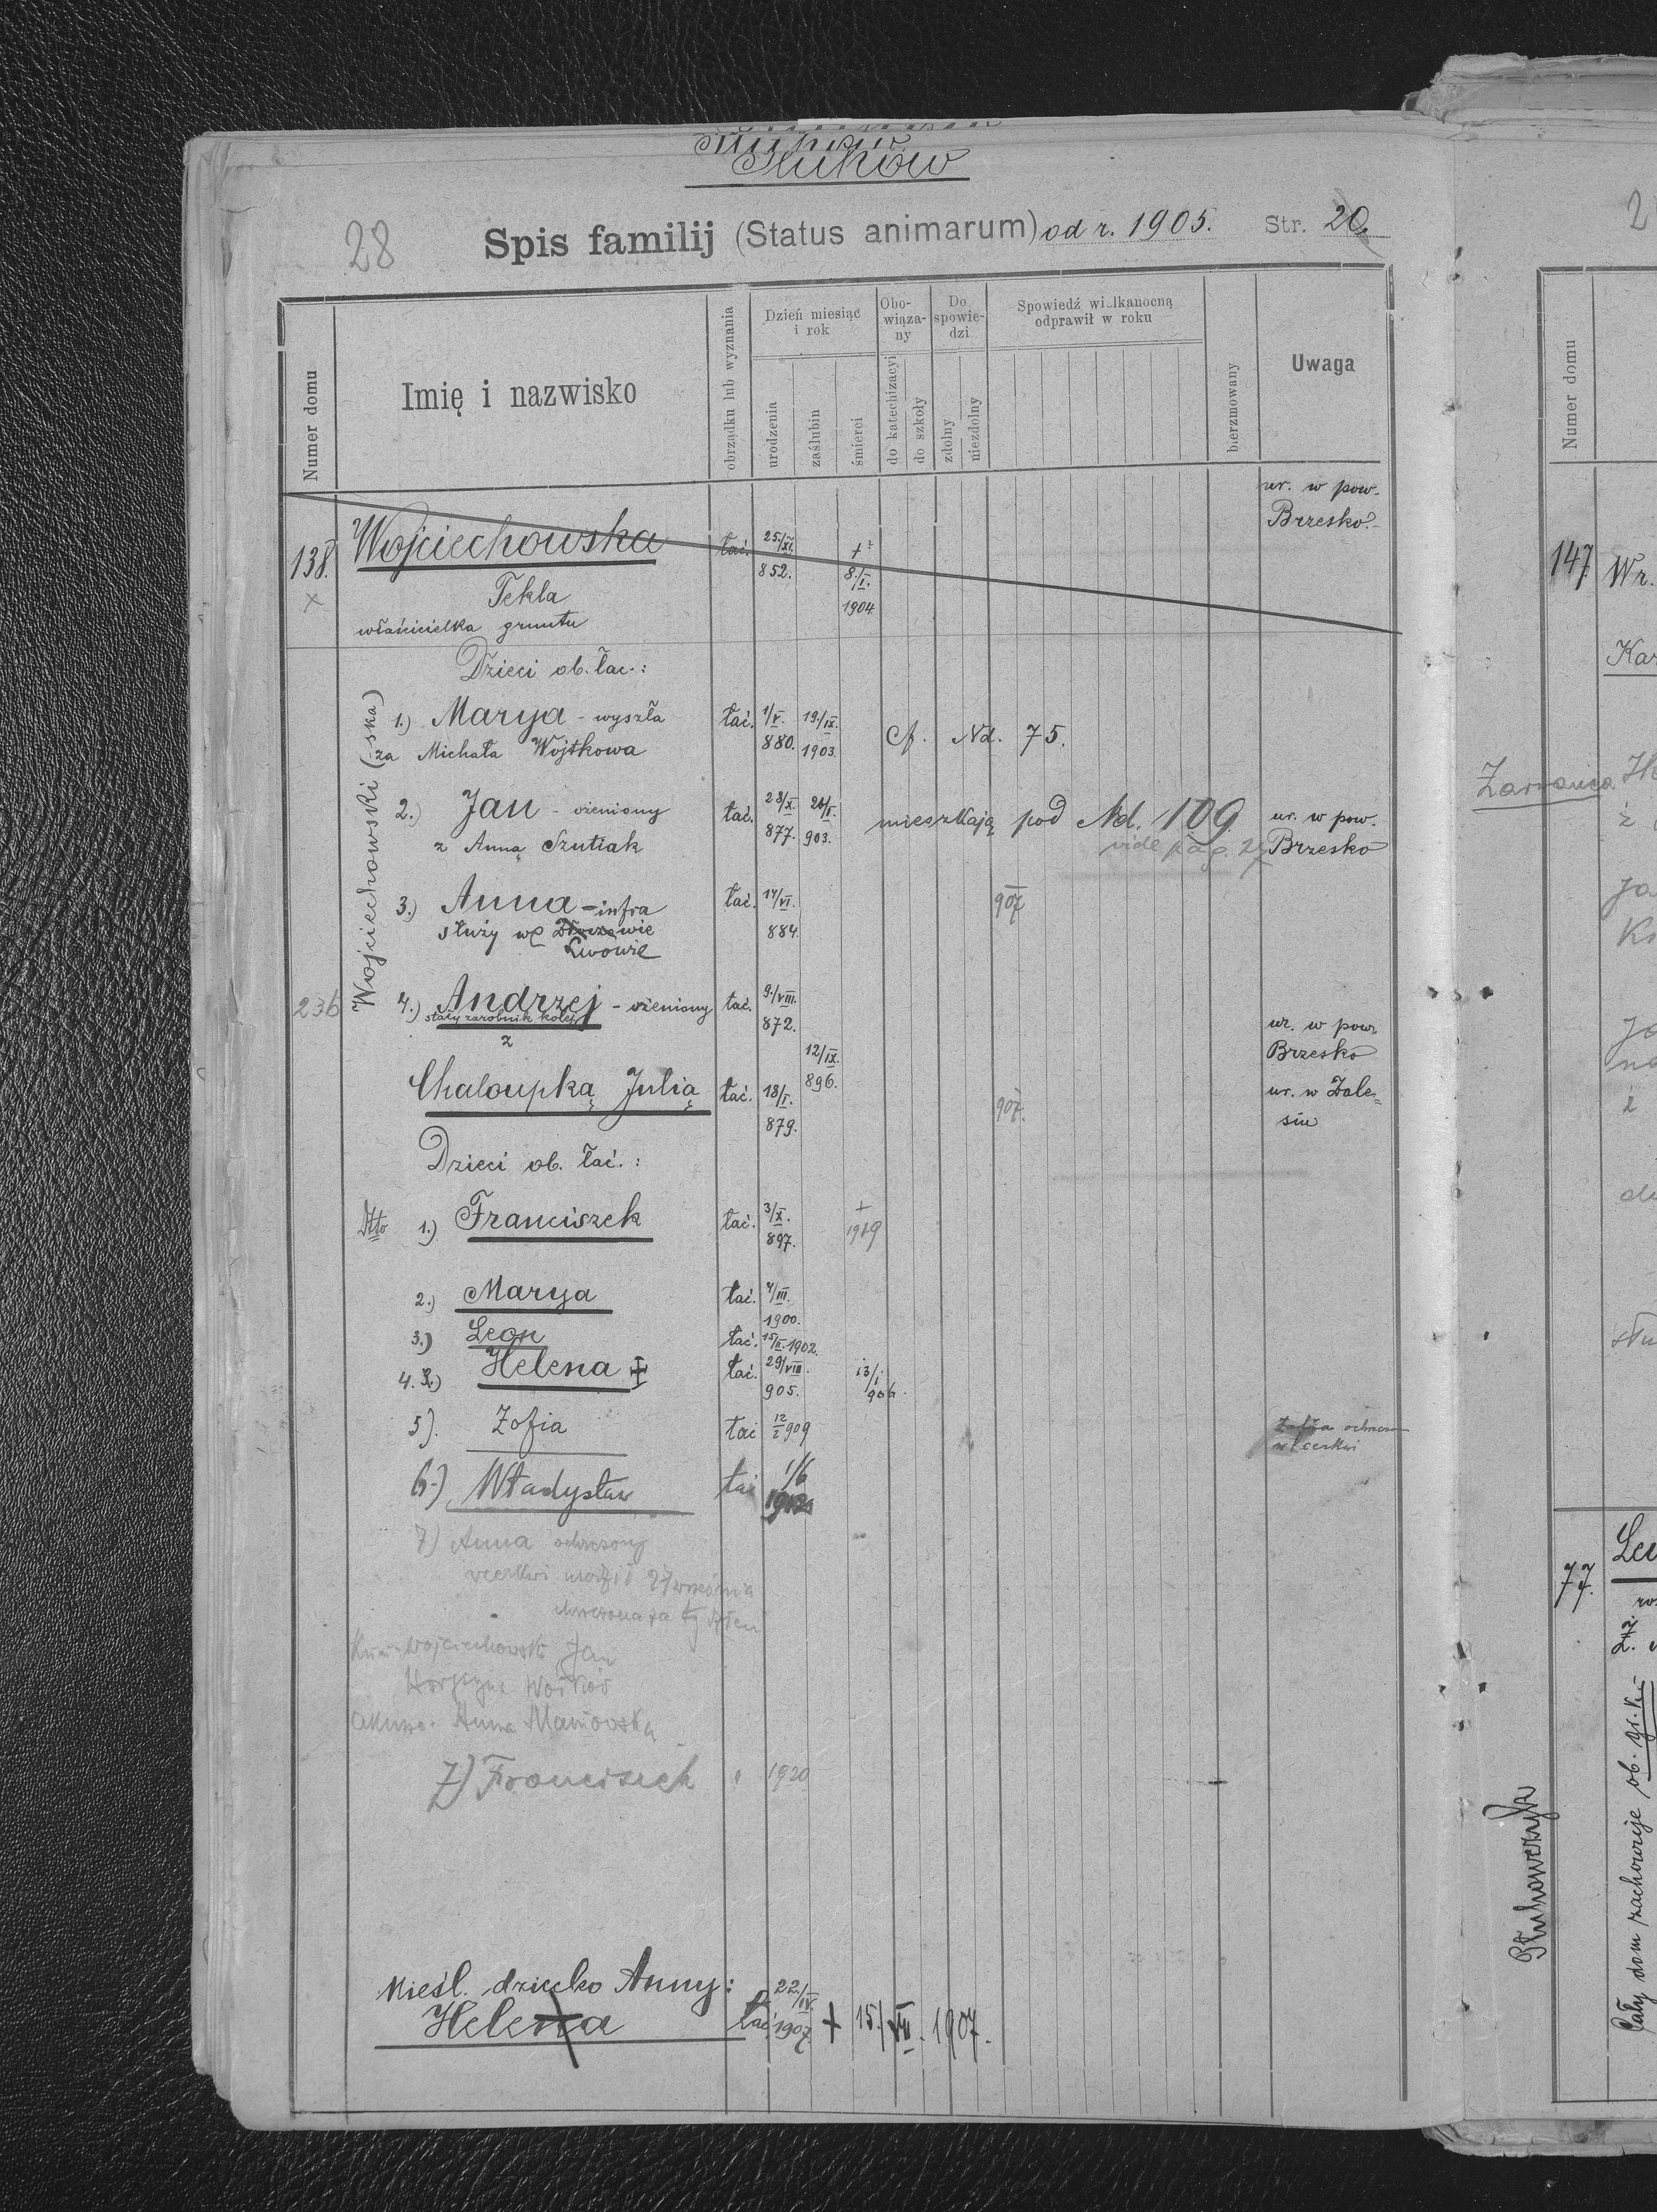 Płuhów
28
Spis familij (Status animarum) od r. 1905. Str. 20
Numer domu
Imię i nazwisko
obrządku lub wyznania
Dzień miesiąc i rok
urodzenia
zaślubin
śmierci
Obo-wiąza-ny
do katechizacyi
do szkoły
Do spowie-dzi
zdolny
niezdolny
Spowiedź wielkanocną odprawił w roku
bierzmowany
Uwaga
138. Wojciechowska łać. 25/XI. 852. + 8/I. 1904 ur. w pow. Brzesko
Tekla
właścicielka gruntu
Dzieci ob. łac.:
Wojciechowski (ska)
1.) Marya - wyszła łać. 1/V. 880. 19/IX. 1903. Cf. Nd. 75.
za Michała Wojtkowa
2.) Jan - ożeniony łać. 28/X. 877. 903. mieszkają pod Nd. 109. ur. w pow. Brzesko
z Anną Szutiak vide pag. 27
3.) Anna - infra łać. 14/VI. 884. 907
służy we Złoczowie
Lwowie
236 4.) Andrzej - ożeniony łać. 9./VIII. 872. ur. w pow. Brzesko
stały zarobnik kolej.
z 12/IX. 896.
Chaloupką Julią łać. 18/I. 879. 907. ur. w Zale=siu
Dzieci ob. łać.:
Dtto 1.) Franciszek łać. 3/X. 897. + 1919
2.) Marya łać. 4/III. 1900.
3.) Leon łać. 15/II. 1902.
4. 3.) Helena + łać. 29/VIII. 905. 13/I. 906.
5). Zofia łać 12/2 909 Zofia ochrzcz. w cerkwi
6.) Władysław łać 1/6
7) Anna
27 września
Wojciechowski Jan
Anna
7) Franciszek " 1920
Nieśl. dziecko Anny:
Helena łać. 22/IV. 1907. + 15./VII. 1907.
147
Wr.
Kar
Zarwanica
77.
Płuhowerzyk
Cały dom zachowuje ob. gr. k.